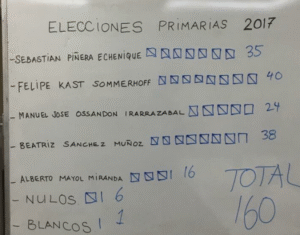 ELECCIONES PRIMARIAS 2017
-SEBASTIAN PIÑERA ECHENIQUE 35
-FELIPE KAST SOMMERHOFF 40
-MANUEL JOSE OSSANDON IRARRAZABAL 24
-BEATRIZ SANCHEZ MUÑOZ 38
-ALBERTO MAYOL MIRANDA 16
-NULOS 6
-BLANCOS 1
TOTAL
160